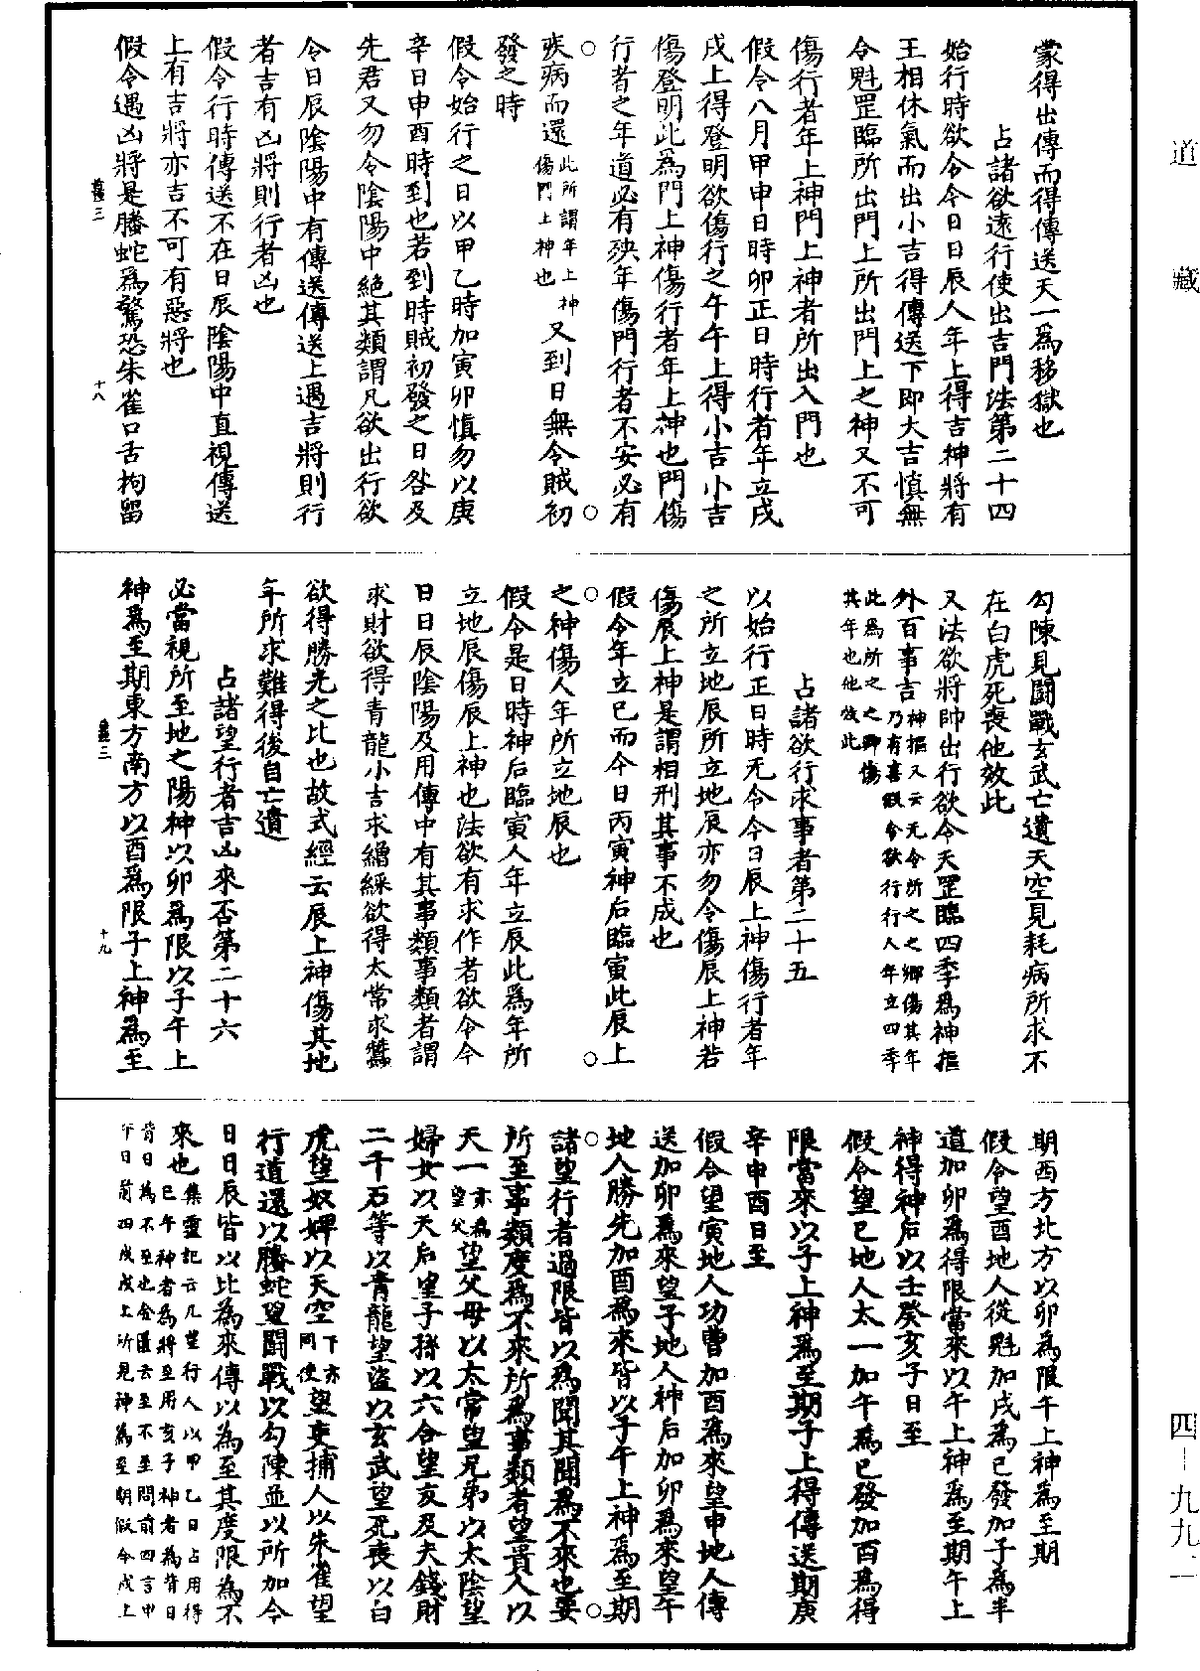 道藏
蒙得出傳而得傳送天一為移獄也
占諸欲遠行使出吉門法第二十四
始行時欲令今日日辰人年上得吉神將有
王相休氣而出小吉得傳送下即大吉慎無
令魁罡臨所出門上所出門上之神又不可
傷行者年上神門上神者所出入門也
假令八月甲申日時卯正日時行者年立戌
戌上得登明欲傷行之午午上得小吉小吉
傷登明此為門上神傷行者年上神也門傷
行者之年道必有殃年傷門行者不安必有
疾病而還此所謂年上神傷門上神也又到日無令賊初
發之時
假令始行之日以甲乙時加寅卯慎勿以庚
辛日申酉時到也若到時賊初發之日咎及
先君又勿令陰陽中絕其類謂凡欲出行欲
令日辰陰陽中有傳送傳送上遇吉將則行
者吉有凶將則行者凶也
假令行時傳送不在日辰陰陽中直視傳送
上有吉將亦吉不可有惡將也
假令遇凶將是螣蛇為驚恐朱雀口舌拘留
三
十八
勾陳見鬪戰玄武亡遺天空見耗病所求不
在白虎死喪他效此
又法欲將帥出行欲令天罡臨四季為神樞
外百事吉神樞又云无令所之之鄉傷其年乃有喜假令欲行行人年立四季
此為所之之鄉傷其年也他效此
占諸欲行求事者第二十五
以始行正日時无令今日辰上神傷行者年
之所立地辰所立地辰亦勿令傷辰上神若
傷辰上神是謂相刑其事不成也
假令年立巳而今日丙寅神后臨寅此辰上
之神傷人年所立地辰也
假令是日時神后臨寅人年立辰此為年所
立地辰傷辰上神也法欲有求作者欲令今
日日辰陰陽及用傳中有其事類事類者謂
求財欲得青龍小吉求繒綵欲得太常求蠶
欲得勝光之比也故式經云辰上神傷其地
年所求難得後自亡遺
占諸望行者吉凶來否第二十六
必當視所至地之陽神以卯為限以子午上
神為至期東方南方以酉為限子上神為至
三
十九
期西方北方以卯為限午上神為至期
假令望酉地人從魁加戌為已發加子為半
道加卯為得限當來以午上神為至期午上
神得神后以壬癸亥子日至
假令望巳地人太一加午為已發加酉為得
限當來以子上神為至期子上得傳送期庚
辛申酉日至
假令望寅地人功曹加酉為來望申地人傳
送加卯為來望子地人神后加卯為來望午
地人勝先加酉為來皆以子午上神為至期
諸望行者過限皆以為聞其聞為不來也要
所至事類度為不來所為事類者望貴人以
天一亦為望父望父母以太常望兄弟以太陰望
婦女以天后望子孫以六合望亥及夫錢財
二千石等以青龍望盜以玄武望死喪以白
虎望奴婢以天空下亦同使望吏捕人以朱雀望
行道還以螣蛇望鬪戰以勾陳並以所加今
日日辰皆以比為來傳以為至其度限為不
來也集靈記云凡望行人以甲乙日占用得巳午神者為將至用亥子神者為背日
背日為不至也金匱云至不至問前四言中
午日前四戌戌上所見神為至期假令戌上
四—九九二